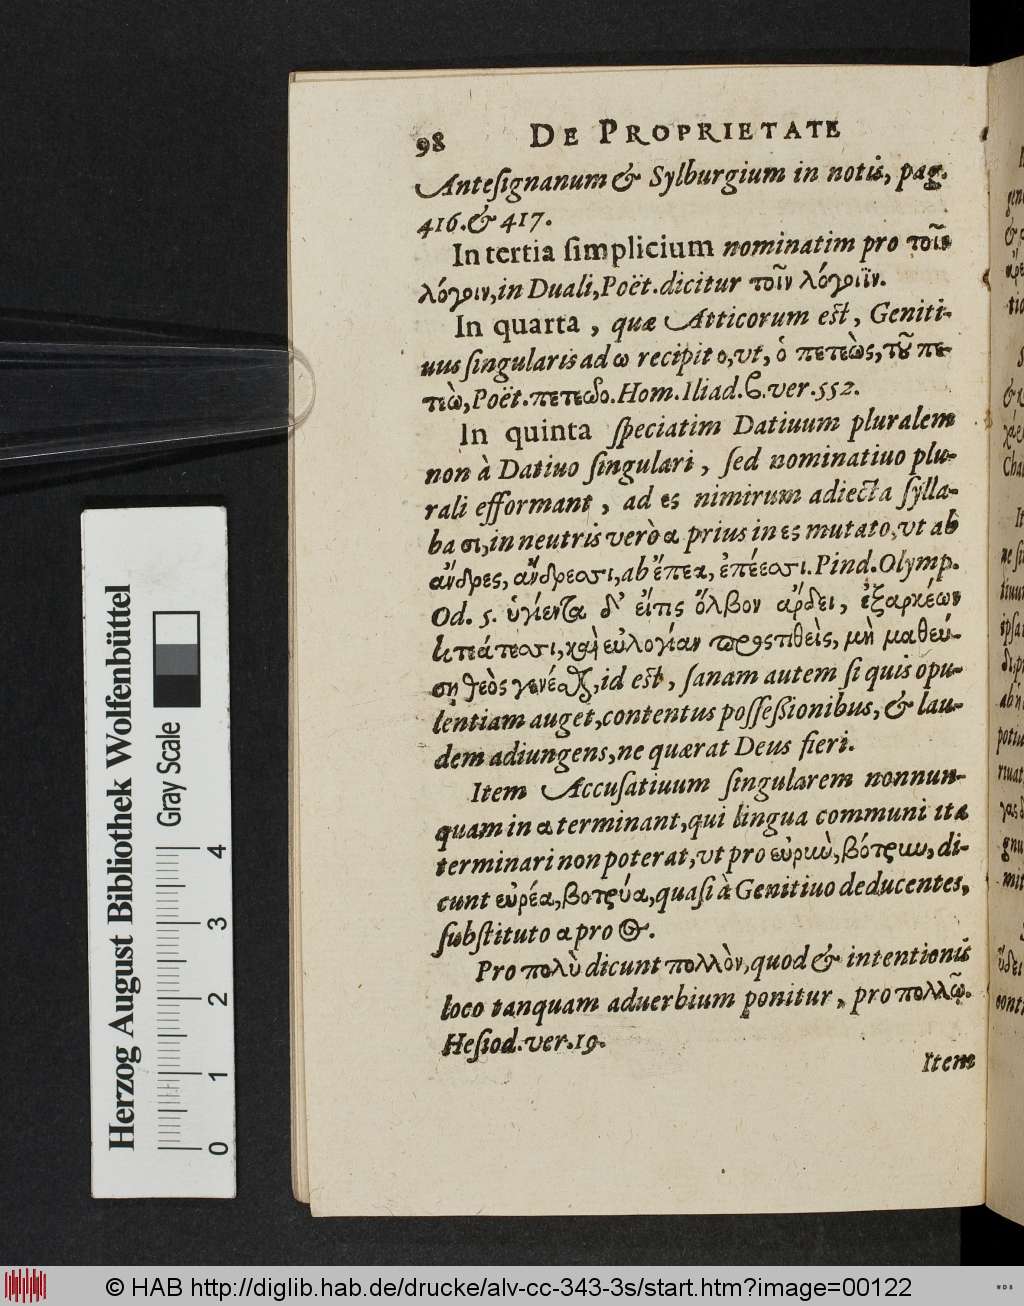 98 DE PROPRIETATE
Anteſignanum & Sylburgium in notis, pag.
416. & 417.
In tertia ſimplicium nominatim pro τοῖς
λόγοιν, in Duali, Poët. dicitur τοῖν λόγοιϊν.
In quarta, quæ Atticorum eſt, Geniti-
uus ſingularis ad ω recipit ο, vt, ὁ πετεὼς, τοῦ πε-
τεὼ, Poët. πετεωο. Hom. Iliad. ϐ. ver. 552.
In quinta ſpeciatim Datiuum pluralem
non à Datiuo ſingulari, ſed nominatiuo plu-
rali efformant, ad ες nimirum adiecta ſylla-
ba σι, in neutris verò α prius in ες mutato, vt ab
ἄνδρες, ἄνδρεσσι, ab ἔπεα, ἐπέεσσι. Pind. Olymp.
Od. 5. ὑγίεντα δ' εἴτις ὄλβον ἄρδει, ἐξαρκέων
κτεάτεσσι, καὶ εὐλογίαν προςτιθεὶς, μὴ μαθεύ-
ση θεὸς γενέσθαι, id eſt, ſanam autem ſi quis opu-
lentiam auget, contentus poſſeßionibus, & lau-
dem adiungens, ne quærat Deus fieri.
Item Accuſatiuum ſingularem nonnun-
quam in α terminant, qui lingua communi ita
terminari non poterat, vt pro εὐρὺν, βότρυν, di-
cunt εὐρέα, βοτρύα, quaſi à Genitiuo deducentes,
ſubſtituto α pro ος.
Pro πολὺ dicunt πολλὸν, quod & intentionis
loco tanquam aduerbium ponitur, pro πολλῷ.
Heſiod. ver. 19.
Item
Herzog August Bibliothek Wolfenbüttel
Gray Scale
0 1 2 3 4
© HAB http://diglib.hab.de/drucke/alv-cc-343-3s/start.htm?image=00122